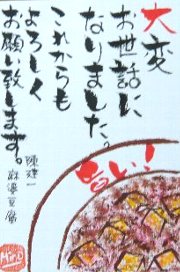 大変
お世話に
なりました。
これからも
よろしく
お願い致します。
陳建一
麻婆豆腐
旨い!